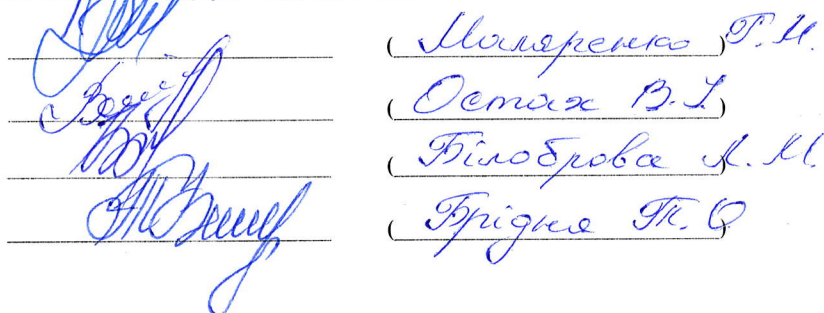 ( Маляренко ) Г. И.
( Остах В. І. )
( Білоброва Л. М. )
( Брідня Т. О )